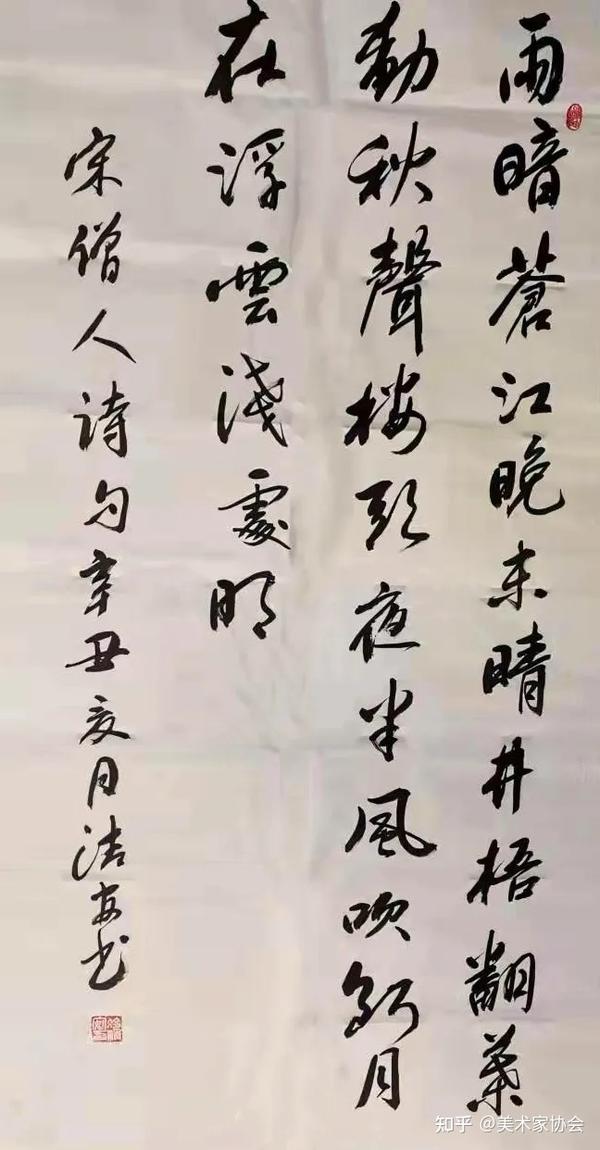 雨暗蒼江晚未晴井梧翻葉
動秋聲楼頭夜半風吹斷月
在浮雲淺處明
宋僧人诗句辛丑夏月安书
知乎 @美术家协会